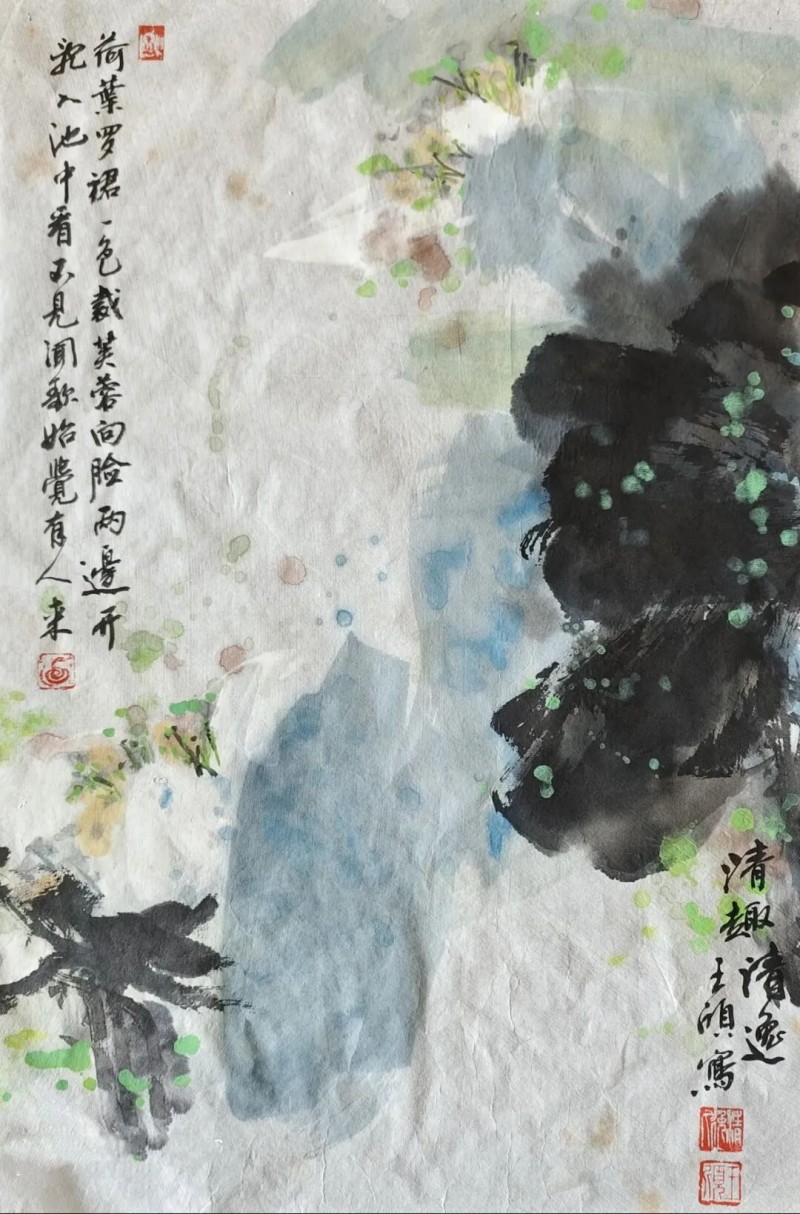 荷葉罗裙一色裁芙蓉向脸两邊开
亂入池中看不見闻歌始覺有人来
清趣
清逸
王寫